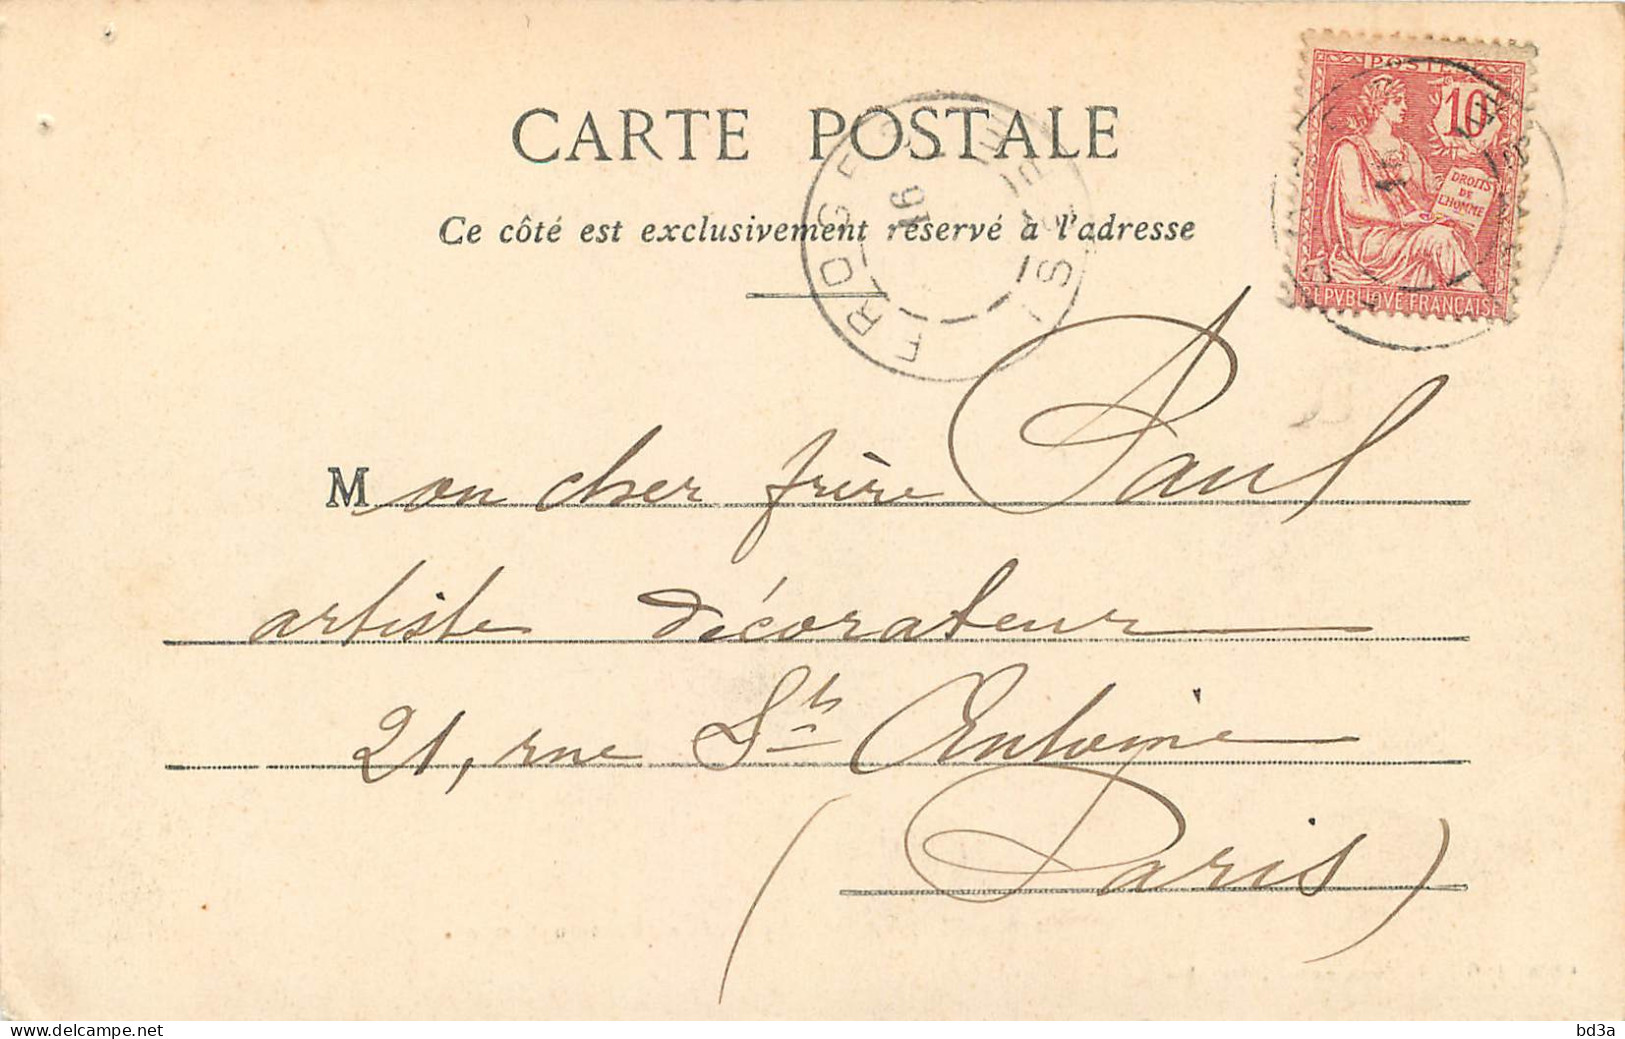 CARTE POSTALE
Ce côté est exclusivement réservé à l'adresse
POSTES
10
DROITS
DE
L'HOMME
REPVBLIQVE FRANÇAISE
16
Mon cher frère Paul
artiste décorateur
21, rue St Antoine
(Paris)
delcampe.net
bd3a